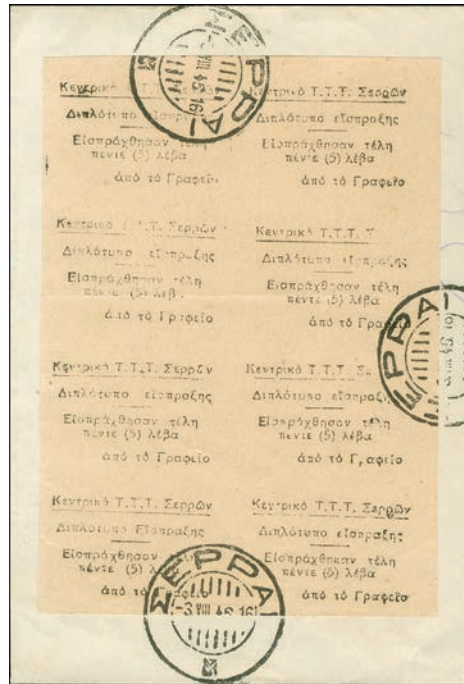 Κεντρικό Τ.Τ.Τ. Σερρῶν
Διπλότυπο εἴσπραξης
Εἰσπράχθησαν τέλη
πέντε (5) λέβα
ἀπό τό Γραφεῖο
Κεντρικό Τ.Τ.Τ. Σερρῶν
Διπλότυπο εἴσπραξης
Εἰσπράχθησαν τέλη
πέντε (5) λέβα
ἀπό τό Γραφεῖο
Κεντρικό Τ.Τ.Τ. Σερρῶν
Διπλότυπο εἴσπραξης
Εἰσπράχθησαν τέλη
πέντε (5) λέβ
ἀπό τό Γραφεῖο
Κεντρικό Τ.Τ.Τ. Σ
Διπλότυπο εἴσπραξης
Εἰσπράχθησαν τέλη
πέντε (5) λέβα
ἀπό τό Γραφεῖο
Κεντρικό Τ.Τ.Τ. Σερρῶν
Διπλότυπο εἴσπραξης
Εἰσπράχθησαν τέλη
πέντε (5) λέβα
ἀπό τό Γραφεῖο
Κεντρικό Τ.Τ.Τ. Σ
Διπλότυπο εἴσπραξης
Εἰσπράχθησαν τέλη
πέντε (5) λέβα
ἀπό τό Γραφεῖο
Κεντρικό Τ.Τ.Τ. Σερρῶν
Διπλότυπο Εἴσπραξης
Εἰσπράχθησαν τέλη
πέντε (5) λέβα
ἀπό τό Γραφεῖο
Κεντρικό Τ.Τ.Τ. Σερρῶν
Διπλότυπο εἴσπραξης
Εἰσπράχθηκαν τέλη
πέντε (5) λέβα
ἀπό τό Γραφεῖο
ΣΕΡΡΑΙ
ΣΕΡΡΑΙ
ΣΕΡΡΑΙ
-3 VIII 46 16